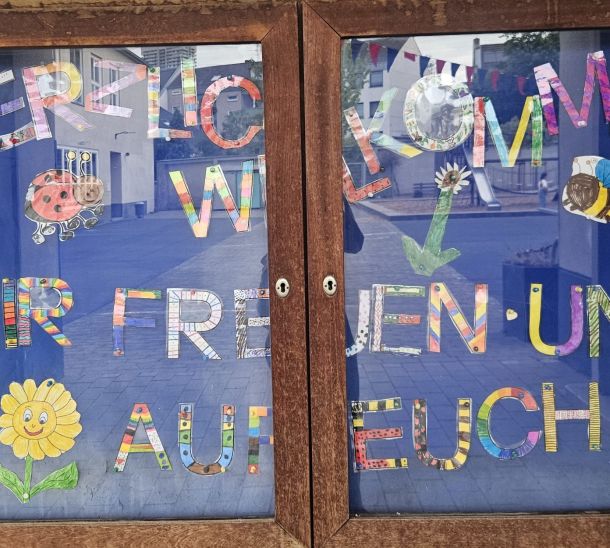 ERZLIC
WI LKOMM
IR FREUEN · UN
AUF EUCH